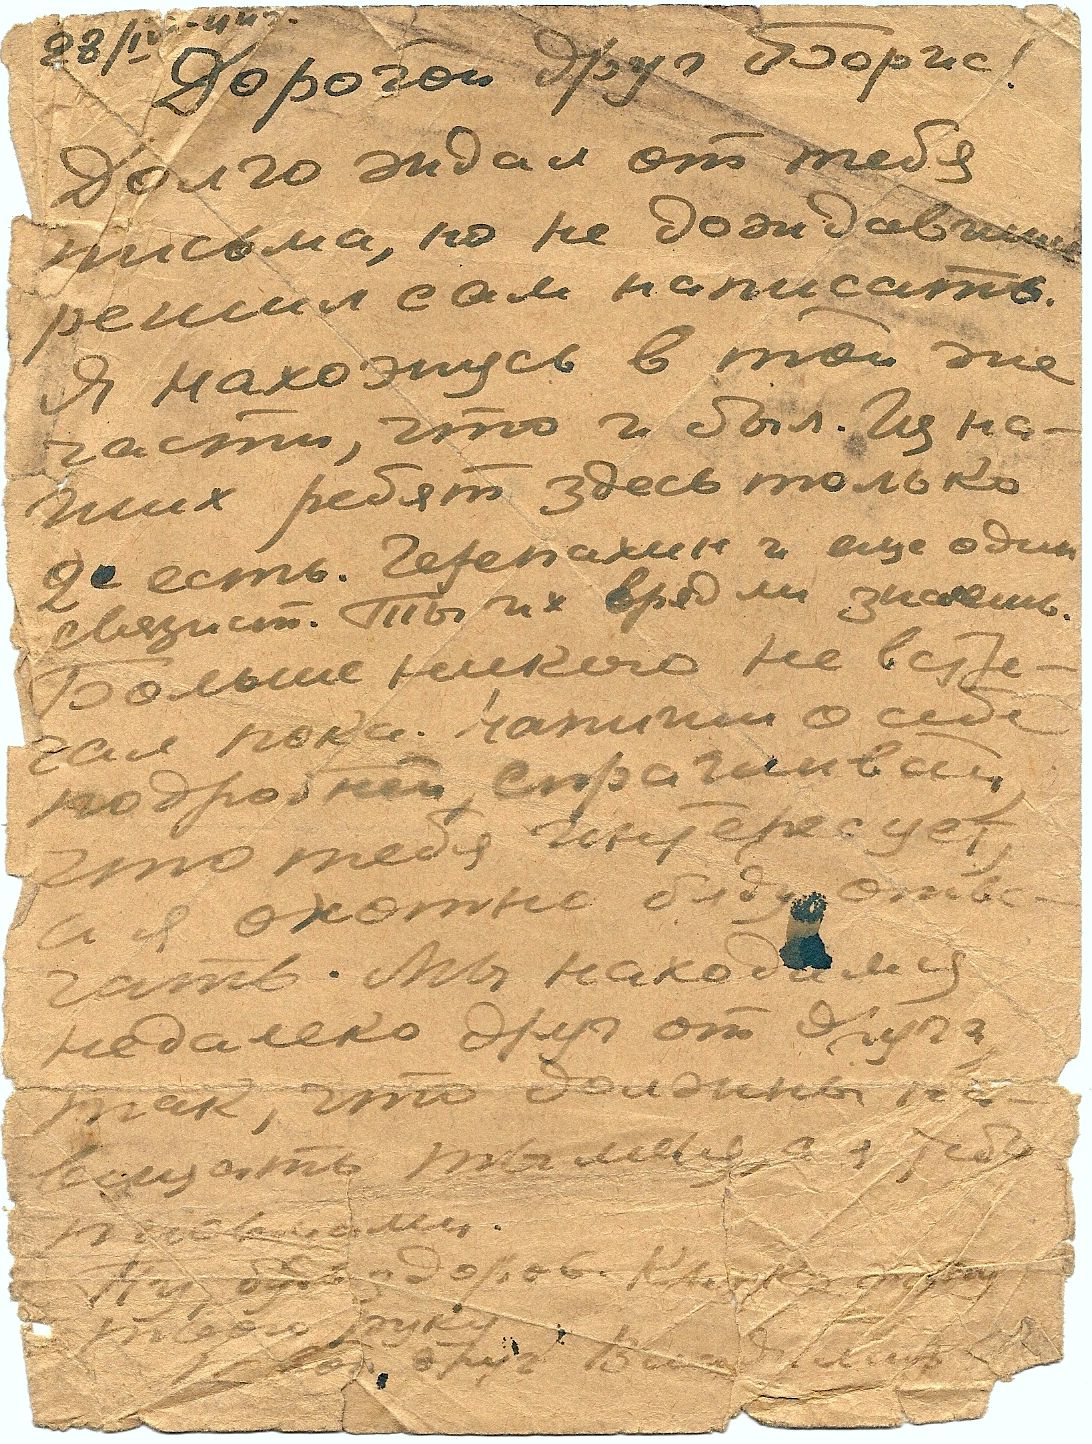 28/IV-44г.
Дорогой друг Борис!
Долго ждал от тебя
письма, но не дождавшись
решил сам написать.
Я нахожусь в той же
части, что и был. Из на-
ших ребят здесь только
2е есть. Черепахин и еще один
связист. Ты их врядли знаешь.
Больше никого не встре-
чал пока. Напиши о себе
подробней, спрашивай,
что тебя интересует,
а я охотно буду отве-
чать. Мы находимся
недалеко друг от друга,
так, что должны на-
вещать ты меня, а я тебя
письмами.
Ну, будь здоров. Крепко жму
твою руку
Твой друг Владимир